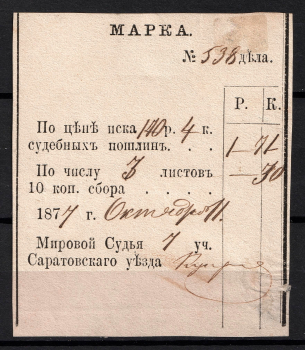 МАРКА.
№ 538 дѣла.
Р. К.
По цѣнѣ иска 170 р. 4 к.
судебныхъ пошлинъ. . . 1 — 71
По числу 3 листовъ
10 коп. сбора . . . . — 30
1877 г. Октября 11.
Мировой Судья 7 уч.
Саратовскаго уѣзда